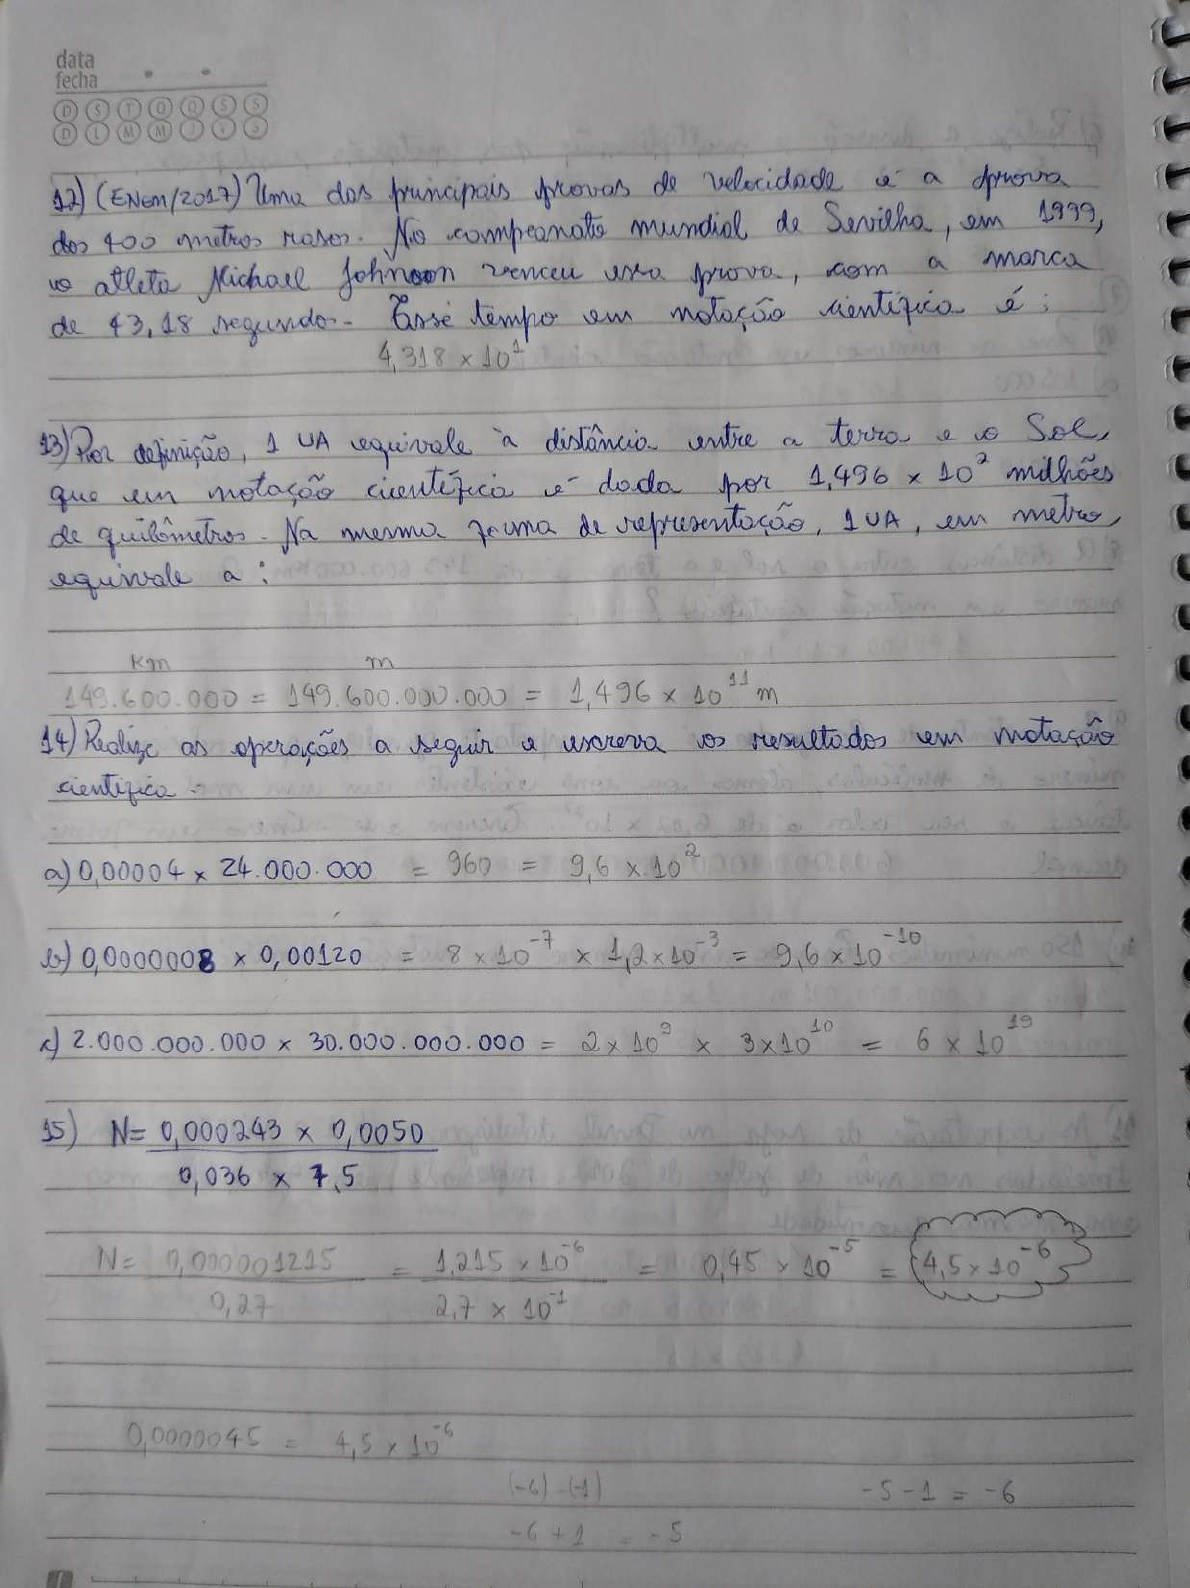 data
fecha
D S T Q Q S S
D L M M J V S
12) (ENEM/2017) Uma das principais provas de velocidade é a prova
dos 400 metros rasos. No campeonato mundial de Sevilha, em 1999,
o atleta Michael Johnson venceu essa prova, com a marca
de 43,18 segundos. Esse tempo em notação científica é:
4,318 x 10¹
13) Por definição, 1 UA equivale à distância entre a terra e o Sol,
que em notação científica é dada por 1,496 x 10² milhões
de quilômetros. Na mesma forma de representação, 1 UA, em metro,
equivale a:
km m
149.600.000 = 149.600.000.000 = 1,496 x 10¹¹ m
14) Realize as operações a seguir e escreva os resultados em notação
científica.
a) 0,00004 x 24.000.000 = 960 = 9,6 x 10²
b) 0,0000008 x 0,00120 = 8 x 10⁻⁷ x 1,2 x 10⁻³ = 9,6 x 10⁻¹⁰
c) 2.000.000.000 x 30.000.000.000 = 2 x 10⁹ x 3 x 10¹⁰ = 6 x 10¹⁹
15) N = 0,000243 x 0,0050
0,036 x 7,5
N = 0,000001215 = 1,215 x 10⁻⁶ = 0,45 x 10⁻⁵ = 4,5 x 10⁻⁶
0,27 2,7 x 10⁻¹
0,0000045 = 4,5 x 10⁻⁶
(-6) - (-1) -5 - 1 = -6
-6 + 1 = -5